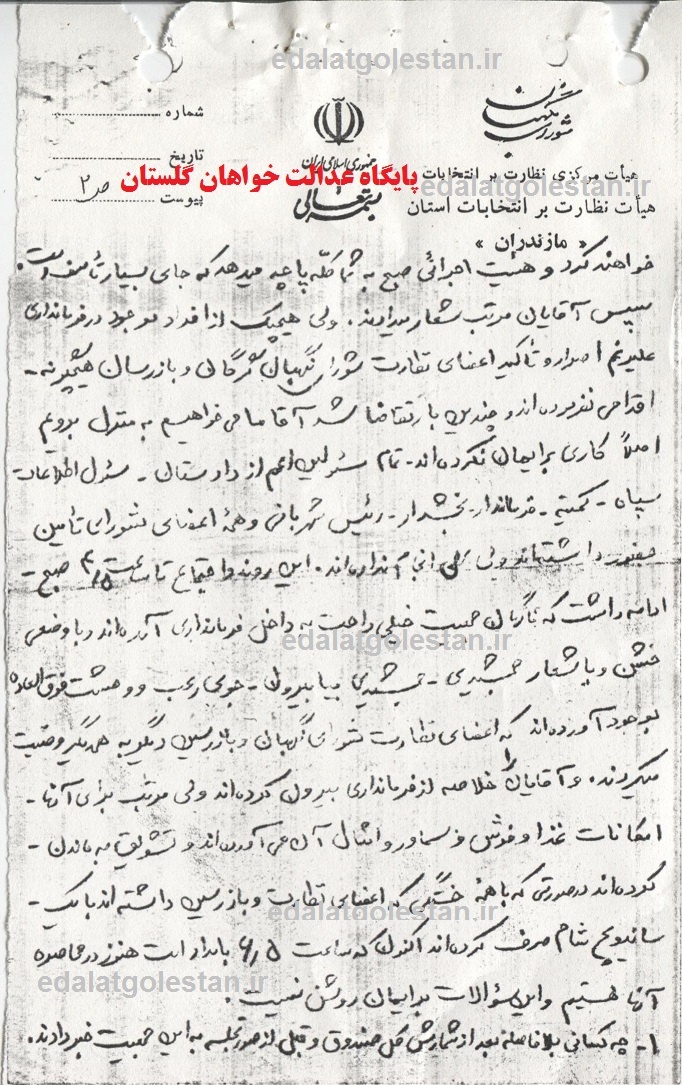 edalatgolestan.ir
شورای نگهبان
شماره
تاریخ
پیوست ص ۲
جمهوری اسلامی ایران
بسمه تعالی
پایگاه عدالت خواهان گلستان
edalatgolestan.ir
هیأت مرکزی نظارت بر انتخابات
هیأت نظارت بر انتخابات استان
« مازندران »
خواهند کرد و هیئت اجرائی صبح به شما کله پاچه میدهد که جای بسیار تأسف است.
سپس آقایان مرتب شعار میدادند. ولی هیچیک از افراد موجود در فرمانداری
علیرغم اصرار و تأکید اعضای نظارت شورای نگهبان گرگان و بازرسان هیچگونه -
اقدامی نفرموده‌اند و چندین بار تقاضا شد آقا ما می‌خواهیم به منزل برویم
اصلاً کاری برایمان نکرده‌اند - تمام مسئولین اعم از دادستان - مسئول اطلاعات
سپاه - کمیته - فرماندار - بخشدار - رئیس شهربانی و همهٔ اعضای شورای تأمین
حضور داشته‌اند ولی انجام نداده‌اند. این روند و اجتماع تا ساعت ۴/۵ صبح -
ادامه داشت که ناگهان جمعیت خیلی راحت به داخل فرمانداری آورده‌اند و با وضعی
edalatgolestan.ir
خشن و با شعار جمشیدی - جمشیدی بیا بیرون - جوی رعب و وحشت فوق‌العاده
بوجود آورده‌اند که اعضای نظارت شورای نگهبان و بازرسین دیگر به همدیگر وصیت
میکردند. و آقایان را خلاصه از فرمانداری بیرون کرده‌اند ولی مرتب برای آنها -
امکانات غذا و فرش و سماور و امثال آن می‌آورده‌اند و تشویق به ماندن -
کرده‌اند درصورتی که با همهٔ خستگی که اعضای نظارت و بازرسین داشته‌اند با یک -
edalatgolestan.ir
ساندویچ شام صرف کرده‌اند اکنون که ساعت ۶/۵ بامداد است هنوز در محاصره
edalatgolestan.ir
آنها هستیم و این سؤالات برایمان روشن نیست.
۱- چه کسانی بلافاصله بعد از شمارش کل صندوق و قبل از صورتجلسه به این جمعیت خبر دادند.